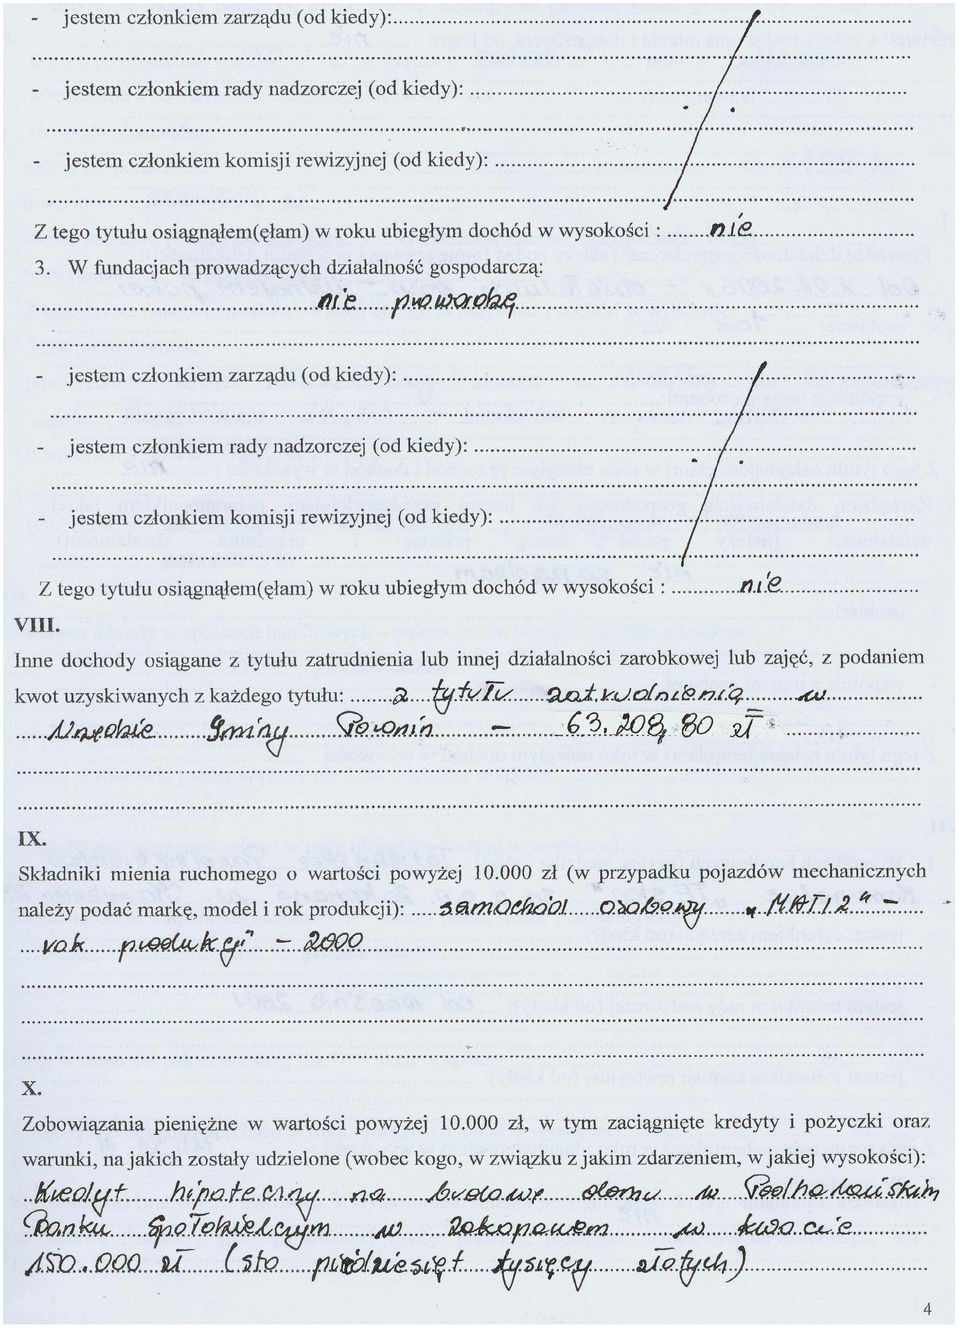 - jestem członkiem zarządu (od kiedy):
- jestem członkiem rady nadzorczej (od kiedy):
- jestem członkiem komisji rewizyjnej (od kiedy):
Z tego tytułu osiągnąłem(ęłam) w roku ubiegłym dochód w wysokości : nie
3. W fundacjach prowadzących działalność gospodarczą:
nie prowadzę
- jestem członkiem zarządu (od kiedy):
- jestem członkiem rady nadzorczej (od kiedy):
- jestem członkiem komisji rewizyjnej (od kiedy):
Z tego tytułu osiągnąłem(ęłam) w roku ubiegłym dochód w wysokości : nie
VIII.
Inne dochody osiągane z tytułu zatrudnienia lub innej działalności zarobkowej lub zajęć, z podaniem
kwot uzyskiwanych z każdego tytułu: z tytułu zatrudnienia w
Urzędzie Gminy Poronin - 63.208,80 zł
IX.
Składniki mienia ruchomego o wartości powyżej 10.000 zł (w przypadku pojazdów mechanicznych
należy podać markę, model i rok produkcji): samochód osobowy „MATIZ" -
rok produkcji - 2000
X.
Zobowiązania pieniężne w wartości powyżej 10.000 zł, w tym zaciągnięte kredyty i pożyczki oraz
warunki, na jakich zostały udzielone (wobec kogo, w związku z jakim zdarzeniem, w jakiej wysokości):
Kredyt hipoteczny na budowę domu w Podhalańskim
Banku Spółdzielczym w Zakopanem w kwocie
150.000 zł (sto pięćdziesięt tysięcy złotych)
4